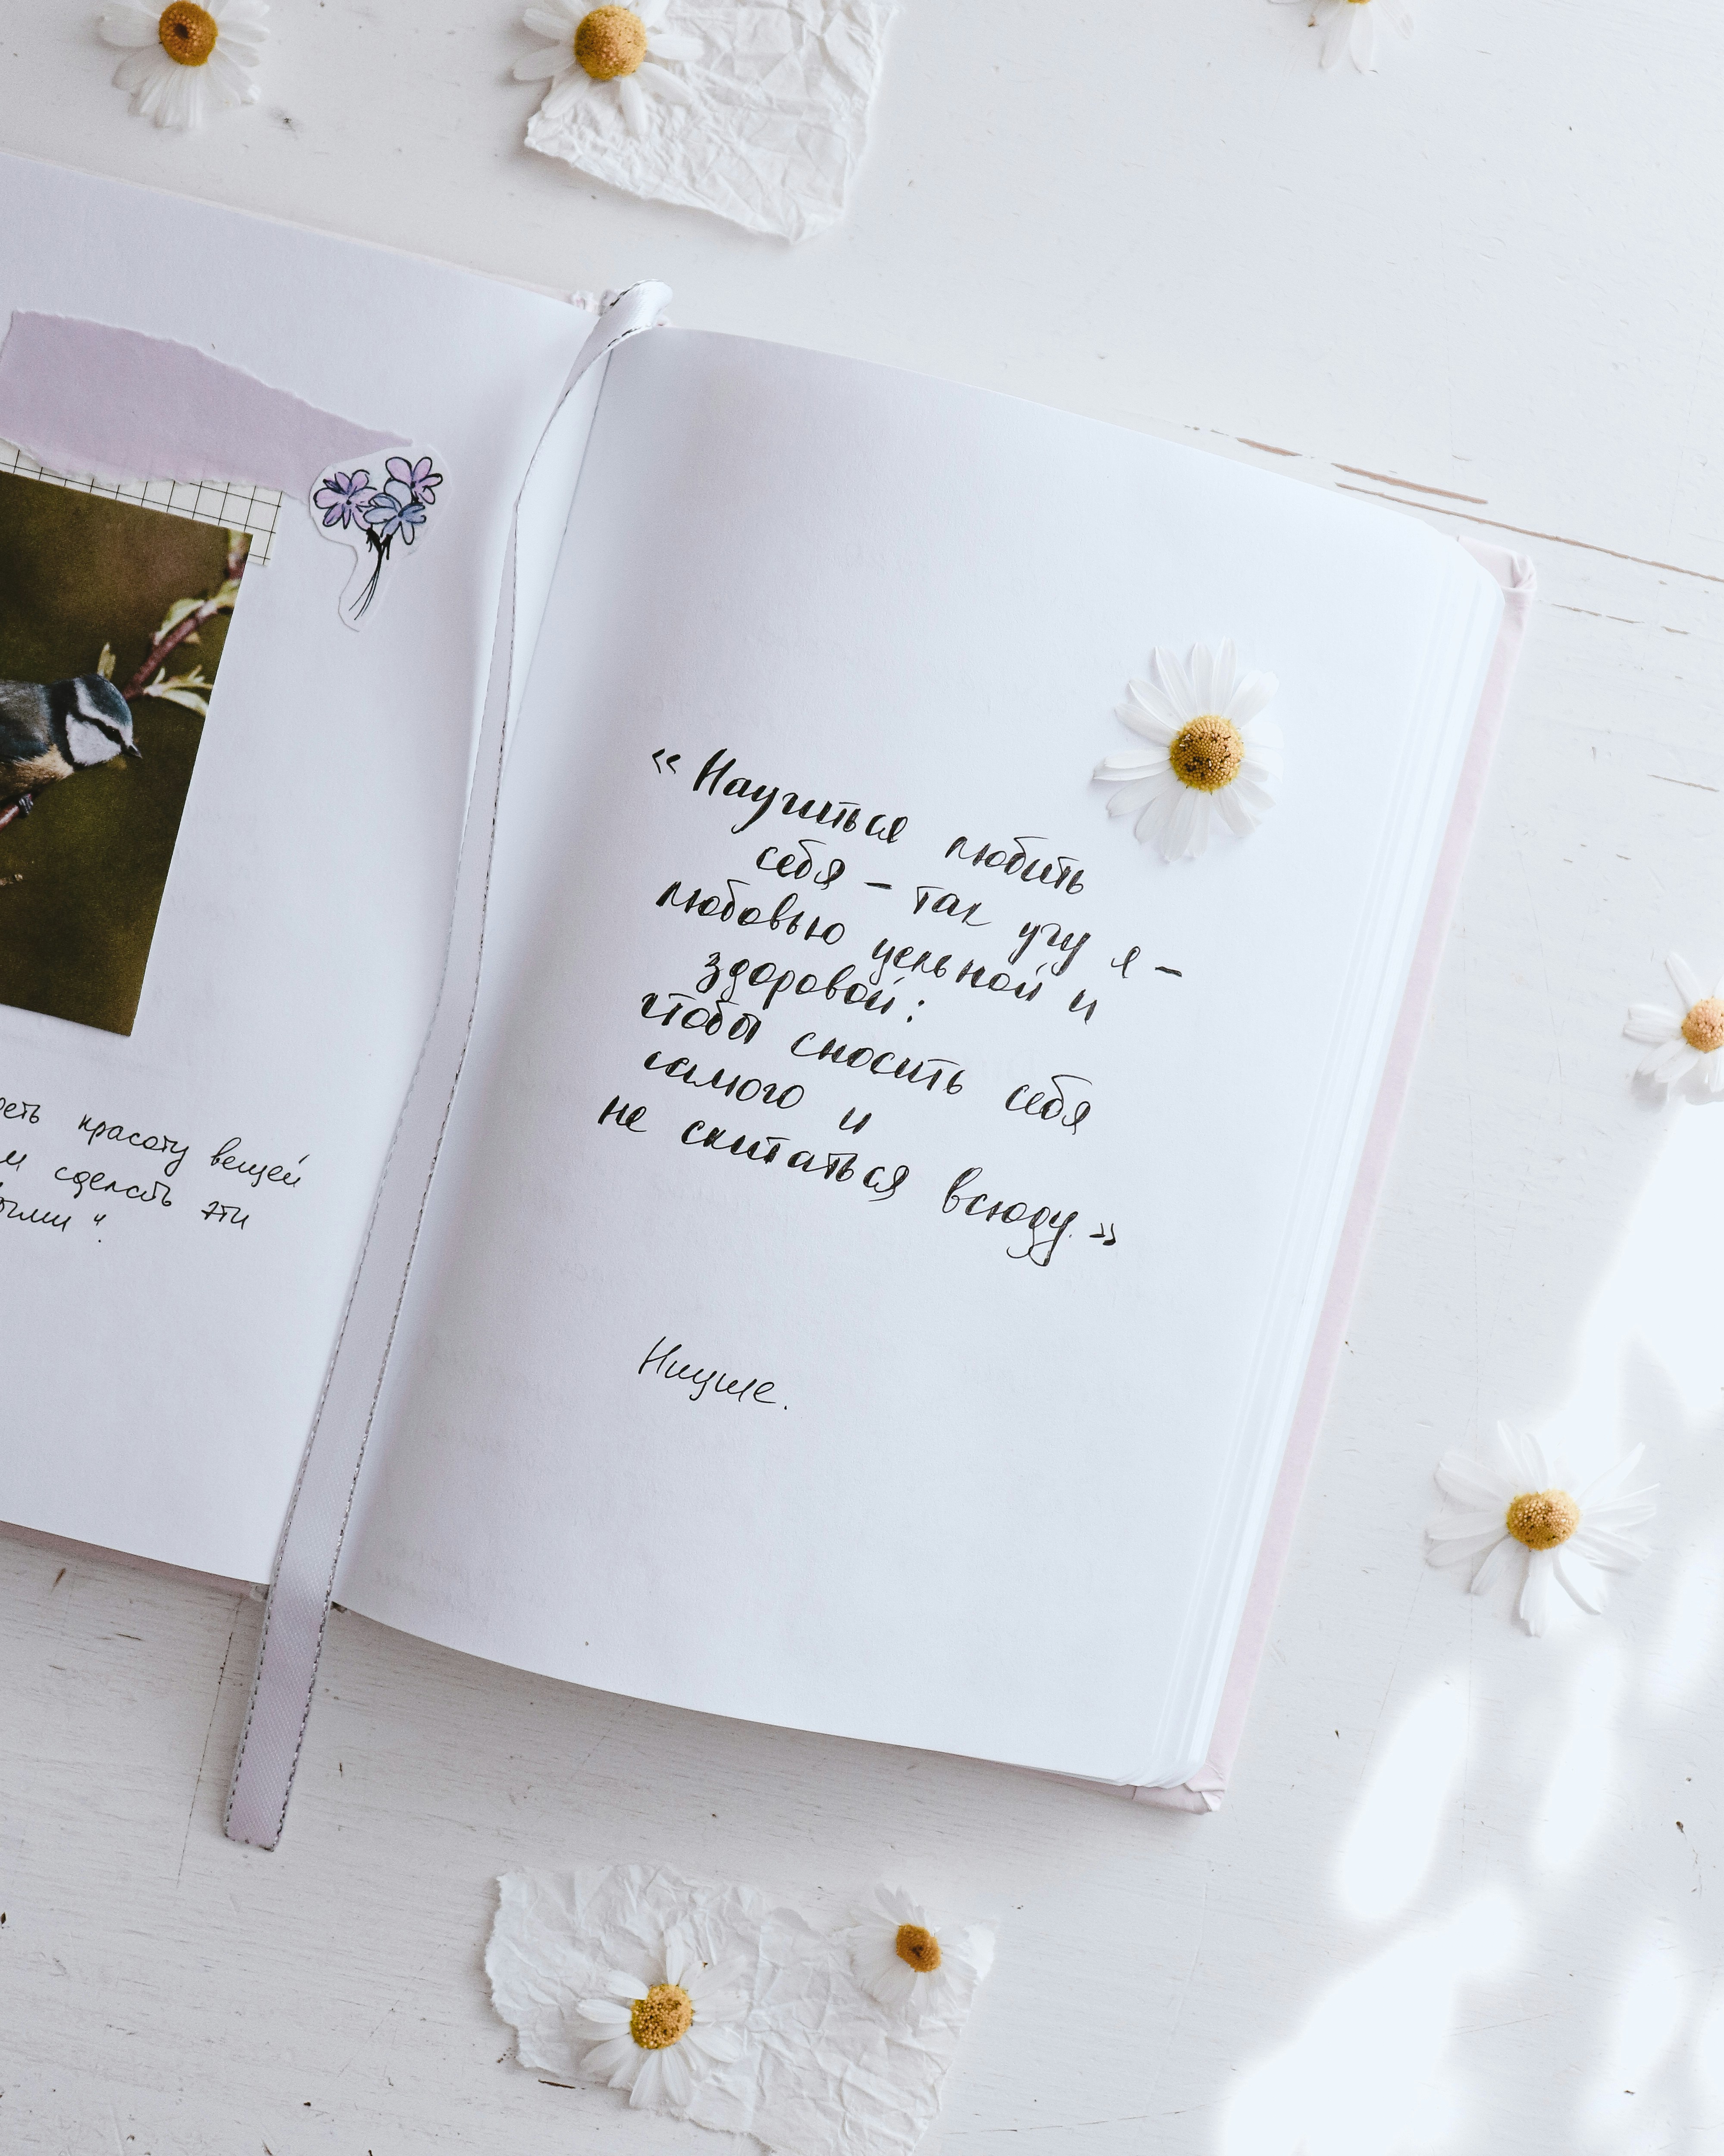 красоту вещей
сделать эти
"Научиться любить
себя – так учу я –
любовью цельной и
здоровой:
чтобы сносить себя
самого и
не скитаться всюду."
Ницше.